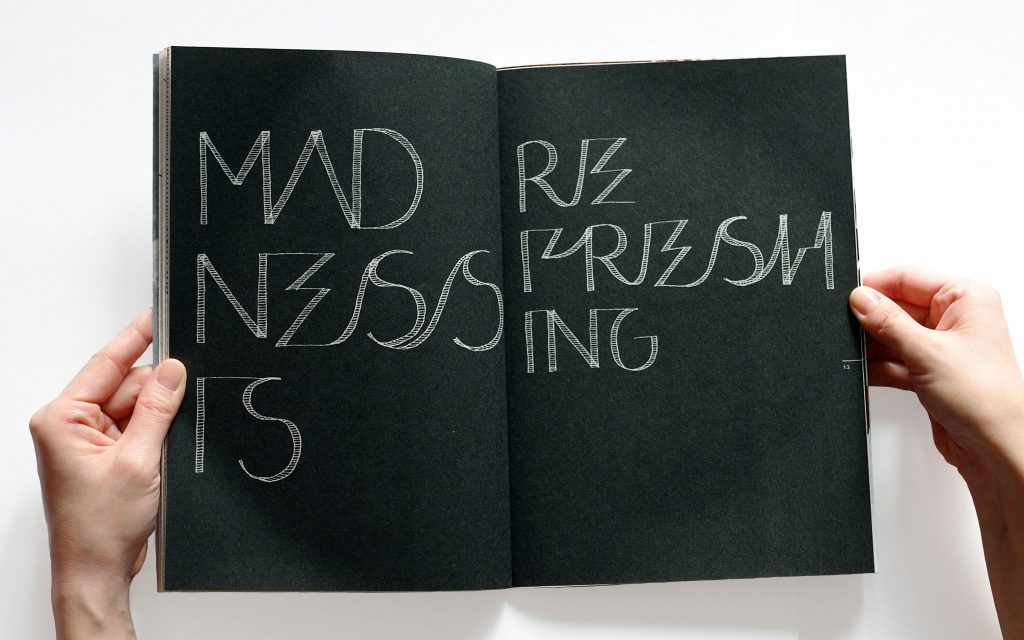 MAD
NESS
IS
RE
FRESH
ING
13